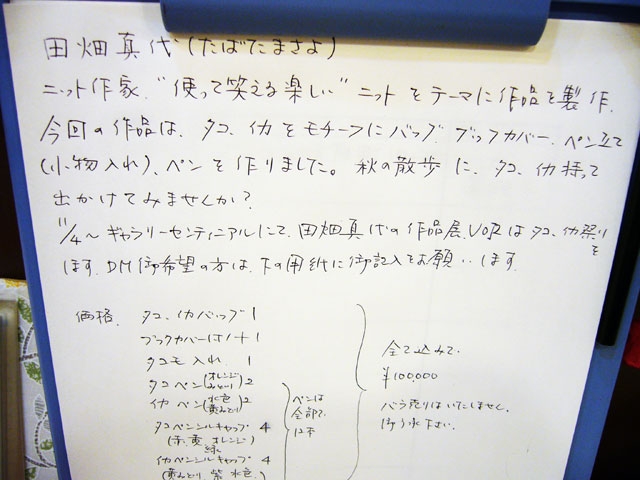 田畑真代(たばたまさよ)
ニット作家. "使って笑える楽しい" ニットをテーマに作品を製作.
今回の作品は、タコ、イカをモチーフにバッグ. ブックカバー、ペン立て
(小物入れ)、ペンを作りました。秋の散歩に、タコ、イカ持って
出かけてみませんか?
11/4〜ギャラリーセンティニアルにて、田畑真代の作品展. はタコ、イカ祭りを
します. DM御希望の方は、下の用紙に御記入をお願いします.
価格. タコ、イカバッグ 1
ブックカバー 1
タコモ入れ. 1
タコペン(オレンジ みどり)2
イカペン(水色 黄みどり)2
タコペンシルキャップ 4
(赤、黄、オレンジ 緑
イカペンシルキャップ 4
(黄みどり、紫、水色、
ペンは
全部で
12本
全て込みで.
¥100,000
バラ売りはいたしません.
御了承下さい.